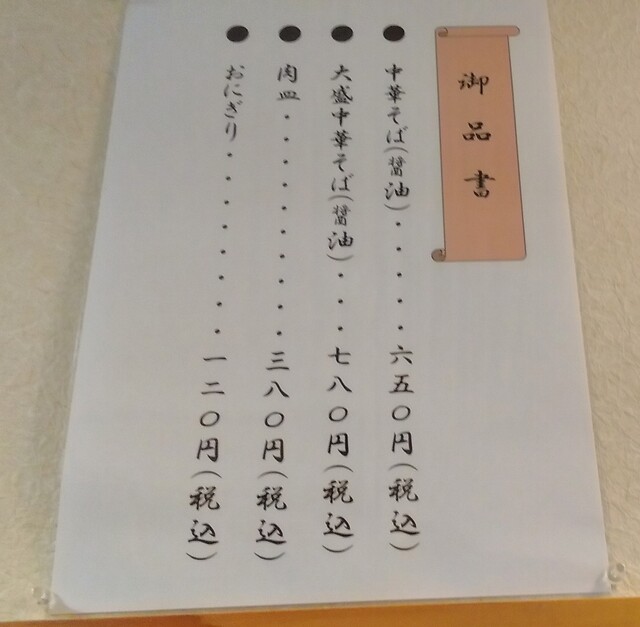 御品書
●中華そば(醤油)・・・・・六五〇円(税込)
●大盛中華そば(醤油)・・・七八〇円(税込)
●肉皿・・・・・・・・・・三八〇円(税込)
●おにぎり・・・・・・・・一二〇円(税込)